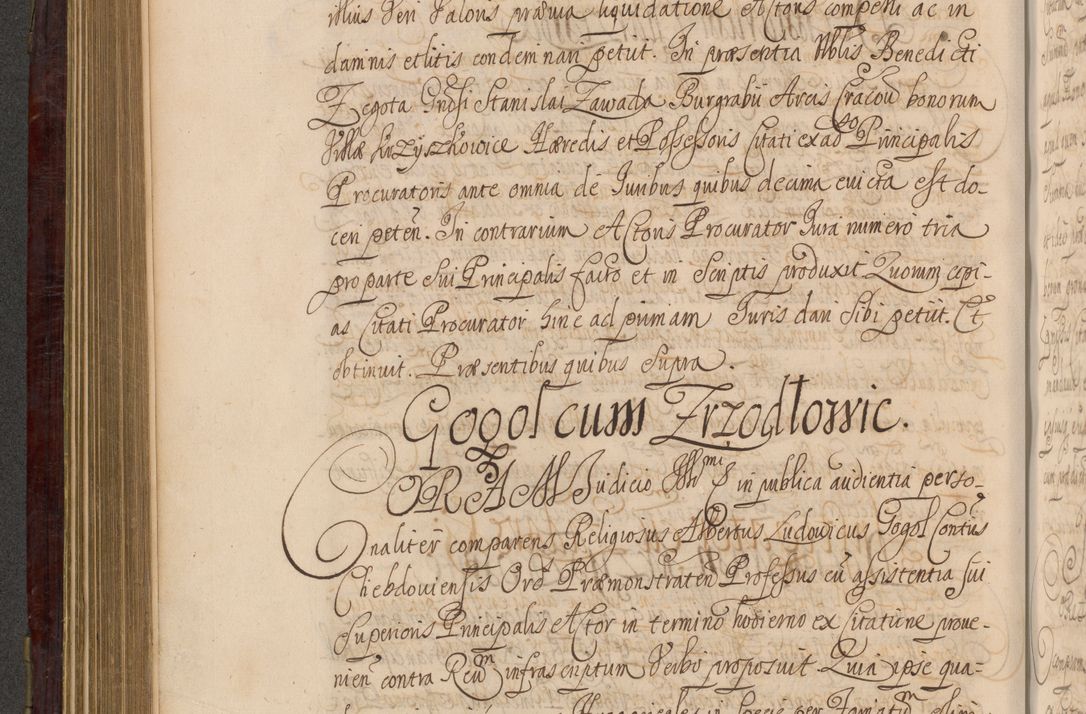 illius veri valoris prævia liquidatione Actori compelli ac in
damnis et litis condemnari petiit. In præsentia Nblis Benedicti
Zegota Gnosi Stanislai Zawada Burgrabii Arcis Cracou bonorum
Villæ Krzyszkowice Hæredis et Possessoris Citati ex ado Principalis
Procuratoris ante omnia de Iuribus quibus decima evicta est do-
ceri peteñ. In contrarium Actoris Procurator Iura numero tria
pro parte Sui Principalis facto et in Scriptis produxit Quorum copi-
as Citati Procurator hinc ad primam Iuris dari Sibi petiit. Et
obtinuit. Præsentibus quibus supra.
Gogol cum Zrzodłowic.
CORAM Iudicio in publica audientia perso-
naliter comparens Religiosus Albertus Ludovicus Gogol Contus
Chebdoviensis Ord Præmonstrateñ Professus cũ assistentia sui
Superioris Principalis Actor in termino hodierno ex Citatione prove-
nieñ contra Reum infrascriptum Verbo proposuit Quia ipse qua-
in Specie per